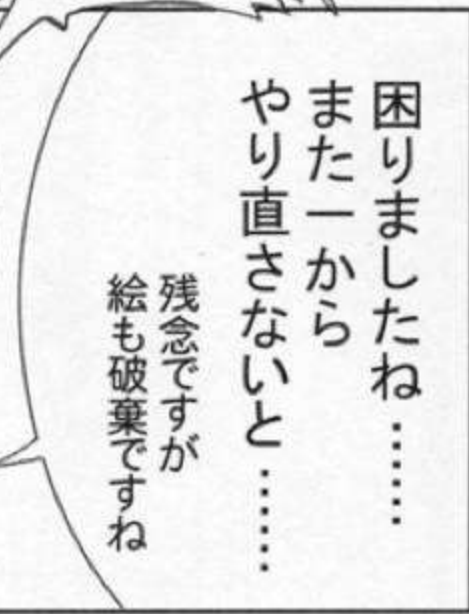 困りましたね……
また一から
やり直さないと……
残念ですが
絵も破棄ですね